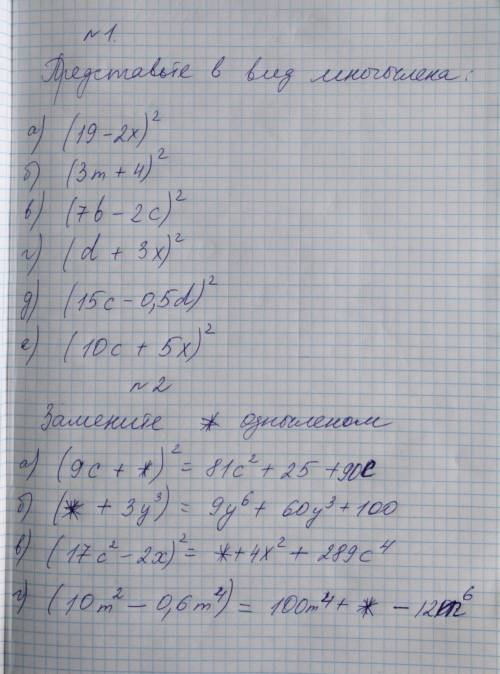 №1.
Представьте в вид многочлена:
а) (19 - 2x)²
б) (3m + 4)²
в) (7b - 2c)²
г) (d + 3x)²
д) (15c - 0,5d)²
е) (10c + 5x)²
№2
Замените * одночленом
а) (9c + *)² = 81c² + 25 + 90c
б) (* + 3y³) = 9y⁶ + 60y³ + 100
в) (17c² - 2x)² = * + 4x² + 289c⁴
г) (10m² - 0,6m⁴) = 100m⁴ + * - 12m⁶